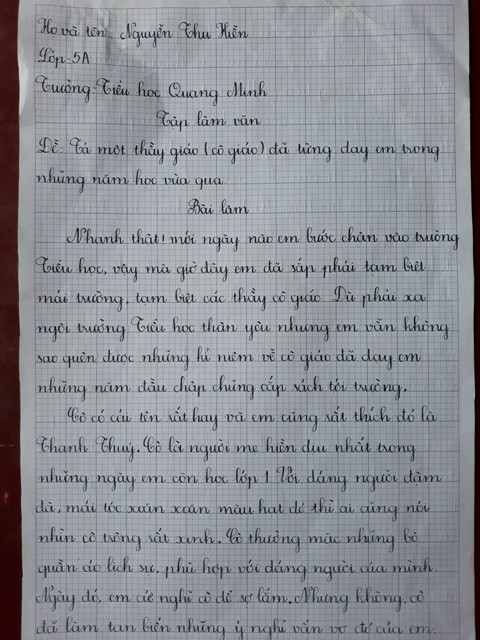 Họ và tên: Nguyễn Thu Hiền
Lớp: 5A
Trường: Tiểu học Quang Minh
Tập làm văn
Đề: Tả một thầy giáo (cô giáo) đã từng dạy em trong
những năm học vừa qua
Bài làm
Nhanh thật! mới ngày nào em bước chân vào trường
Tiểu học, vậy mà giờ đây em đã sắp phải tạm biệt
mái trường, tạm biệt các thầy cô giáo. Dù phải xa
ngôi trường Tiểu học thân yêu nhưng em vẫn không
sao quên được những kỉ niệm về cô giáo đã dạy em
những năm đầu chập chững cắp sách tới trường.
Cô có cái tên rất hay và em cũng rất thích đó là
Thanh Thuý. Cô là người mẹ hiền dịu nhất trong
những ngày em còn học lớp 1. Với dáng người đậm
đà, mái tóc xoăn xoăn màu hạt dẻ thì ai cũng nói
nhìn cô trông rất xinh. Cô thường mặc những bộ
quần áo lịch sự, phù hợp với dáng người của mình.
Ngày đó, em cứ nghĩ cô dễ sợ lắm. Nhưng không, cô
đã làm tan biến những ý nghĩ vẩn vơ đó của em